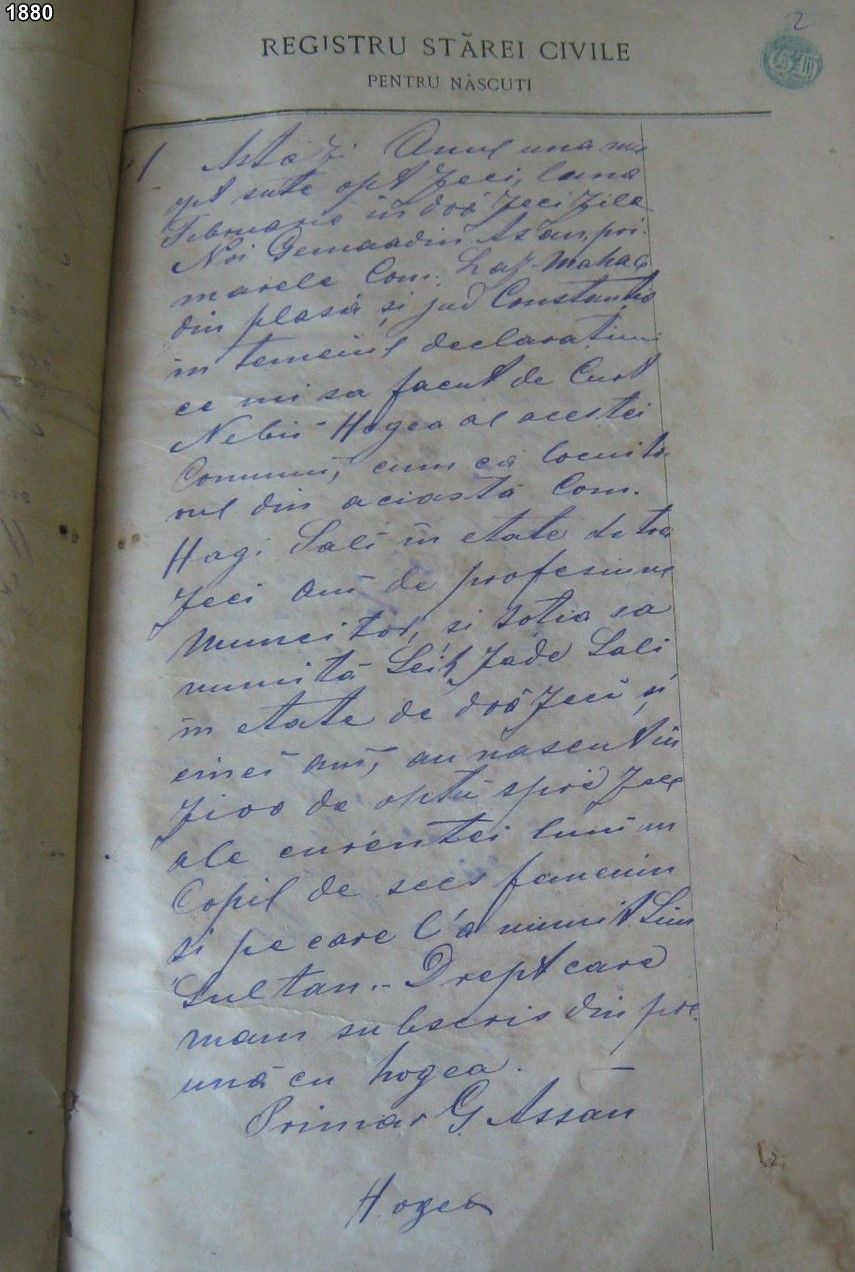 1880
2
REGISTRU STĂREI CIVILE
PENTRU NĂSCUTI
1 Astă Ji. Anul una mie
opt sute opt Jeci, luna
Februarie in doă Jeci Jile
Noi Gemaadin Asan, pri-
marele Com.
din plasa si jud Constanția
in temeiul declaratiuni
ce mi sa facut de Curt
Nebii Hogea al acestei
Comunii, cum că locuito
rul din aciastă Com.
Hagi Sali in etate de trei
Jeci ani de profesiune
muncitor, si sotia sa
numită Jade Sali
in etate de doă Jeci si
cinci ani, au nascut in
Jioo de optu spre Jece
ale curentei luni un
Copil de secs femenin
si pe care l'a numit
Sultan.- Drept care
mam subscris din pre-
ună cu hogea.
Primar G. Assan
Hogea